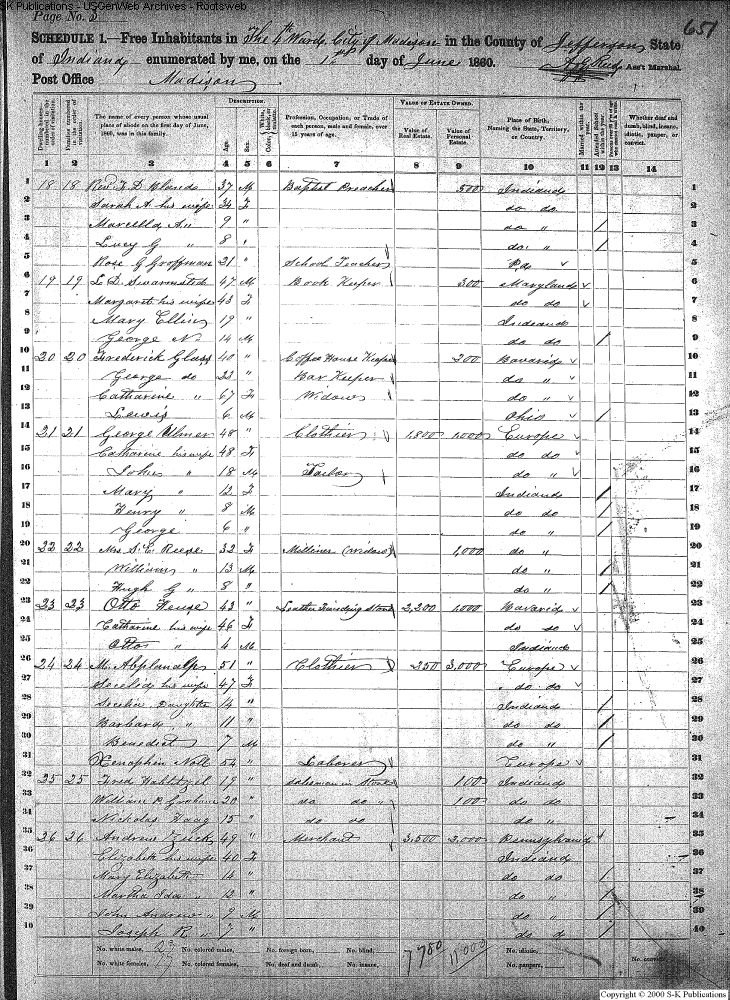 S-K Publications - USGenWeb Archives - Rootsweb
Page No. 3
651
SCHEDULE 1.—Free Inhabitants in The 4th Ward, City of Madison in the County of Jefferson State
of Indiana enumerated by me, on the 1st day of June 1860. Ass't Marshal.
Post Office Madison
Dwelling-houses—numbered in the order of visitation. Families numbered in the order of visitation. The name of every person whose usual place of abode on the first day of June, 1860, was in this family. DESCRIPTION. Age. Sex. Color, White, black, or mulatto. Profession, Occupation, or Trade of each person, male and female, over 15 years of age. VALUE OF ESTATE OWNED. Value of Real Estate. Value of Personal Estate. Place of Birth, Naming the State, Territory, or Country. Married within the year. Attended School within the year. Whether deaf and dumb, blind, insane, idiotic, pauper, or convict.
1 2 3 4 5 6 7 8 9 10 11 12 13 14
1 18 18 Rev. D. 37 M Baptist Preacher 500 Indiana 1
2 Sarah A. his wife 34 F do do 2
3 Marcella A. " 9 " do " / 3
4 Lucy G " 8 do " / 4
5 Rose G Groffman 21 " School Teacher 5
6 19 19 L. D. 47 M Book Keeper 300 Maryland 6
7 Margaret his wife 43 F do do 7
8 Mary Ellin 19 " Indiana 8
9 George N. 14 M do do / 9
10 20 20 Frederick Glass 40 " Coffee House Keeper 200 Bavaria 10
11 George do 23 " Bar Keeper do " 11
12 Catharine " 67 F Widow do " 12
13 Lewis 6 M Ohio / 13
14 21 21 George Ulmer 48 " Clothier 1,800 1,000 Europe 14
15 Catharine his wife 48 F do do 15
16 John " 18 M Tailor do " 16
17 Mary " 12 F Indiana / 17
18 Henry " 8 M do do / 18
19 George 6 " do " / 19
20 22 22 Mrs S. E. Reese 32 F Milliner (widow) 1,000 do " 20
21 William " 13 M do " / 21
22 Hugh G " 8 " do " / 22
23 23 23 Otto 43 " Leather Finding Store 2,200 1,000 Bavaria 23
24 Catharine his wife 46 F do do 24
25 Otto " 4 M Indiana 25
26 24 24 M. Abplanalp 51 " Clothier 250 3,000 Europe 26
27 his wife 47 F do do 27
28 Daughter 14 " Indiana / 28
29 Barbara " 11 " do do / 29
30 Benedict 7 M do " / 30
31 Xenophen Noll 54 " Laborer Europe 31
32 25 25 Fred 19 " Salesman in Store 100 Indiana 32
33 William P. Graham 20 " do do " 100 do do 33
34 Nicholas Haag 15 " do do do " 34
35 26 26 Andrew 49 " Merchant 3,500 3,000 Pennsylvania 35
36 Elizabeth his wife 40 F Indiana 36
37 Mary Elizabeth 14 " do do / 37
38 Martha Ida " 12 " do do / 38
39 John Andrew " 9 M do " / 39
40 Joseph R. " 7 " do / 40
No. white males, 23 No. colored males, No. foreign born, No. blind, 7750 11000 No. idiotic,
No. white females, 17 No. colored females, No. deaf and dumb, No. insane, No. paupers, No. convicts,
Copyright © 2000 S-K Publications